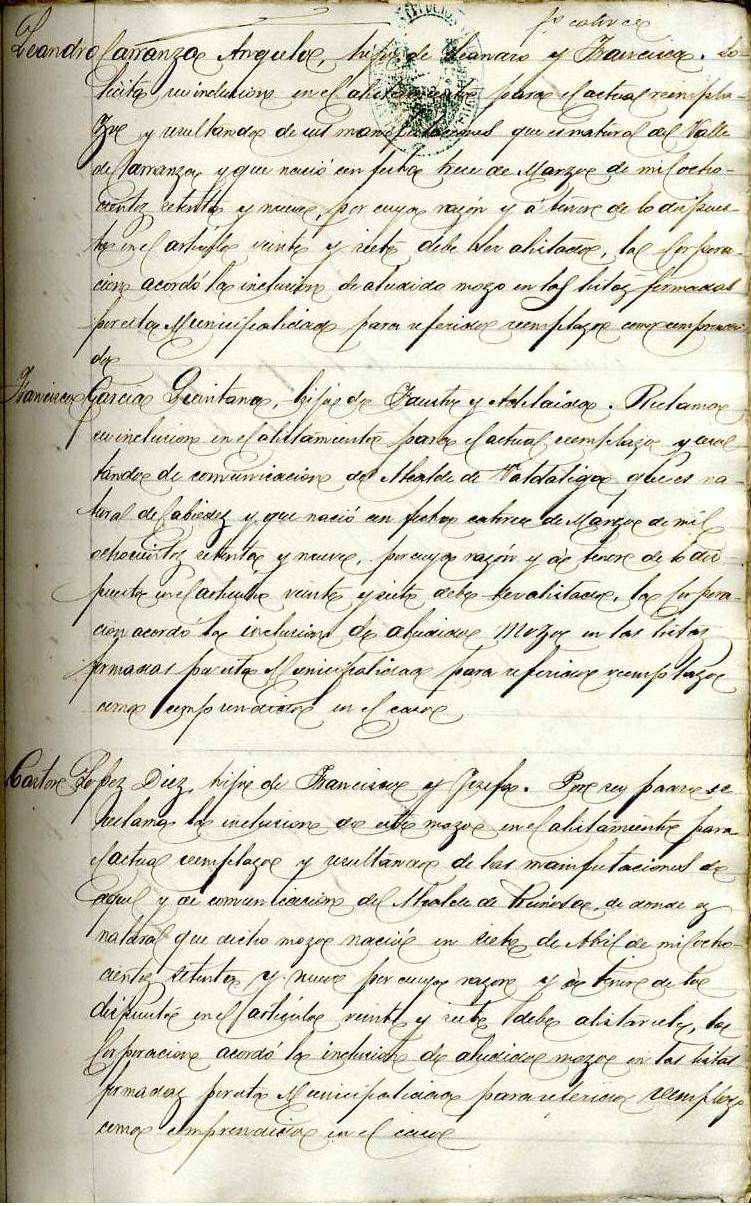 fº catorce
Leandro Carranza Angulo, hijo de Leandro y Francisca. So-
licita su inclusion en el alistamiento para el actual reempla-
zo y resultando de sus manifestaciones que es natural del Valle
de Carranza y que nació en fecha trece de Marzo de mil ocho-
cientos setenta y nueve, por cuya razón y á tenor de lo dispues-
to en el artículo veinte y siete debe ser alistado, la Corpora-
cion acordó la inclusion de aludido mozo en las listas formadas
por esta Municipalidad para referido reemplazo como comprendi-
do
Francisco García Quintana, hijo de Fausto y Adelaida. Reclama
su inclusion en el alistamiento para el actual reemplazo y resul
tando de comunicacion del Alcalde de Valdaliga que es na-
tural de Cabiedez y que nació en fecha catorce de Marzo de mil
ochocientos setenta y nueve, por cuya razón y á tenor de lo dis-
puesto en el artículo veinte y siete debe ser alistado, la Corpora-
cion acordó la inclusion de aludido mozo en las listas
formadas por esta Municipalidad para referido reemplazo
como comprendido en el caso
Castor Lopez Diez, hijo de Francisco y Josefa. Por su padre se
reclama la inclusion de este mozo en el alistamiento para
el actual reemplazo y resultando de las manifestaciones de
aquel y de comunicacion del Alcalde de de donde es
natural que dicho mozo nació en siete de Abril de mil ocho-
cientos setenta y nueve por cuya razon y á tenor de lo
dispuesto en el artículo veinte y siete debe alistarsele, la
Corporacion acordó la inclusion de aludido mozo en las listas
formadas por esta Municipalidad para referido reemplazo
como comprendido en el caso